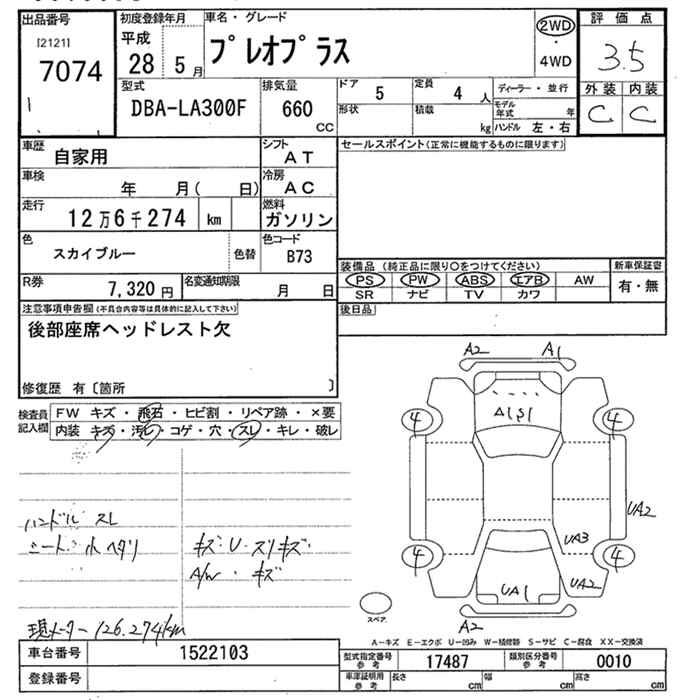 出品番号 初度登録年月 車名・グレード 2WD 評価点
[2121] 平成 プレオプラス ・ 3.5
7074 28 5月 4WD
型式 排気量 ドア 5 定員 4人 ディーラー・並行 外装 内装
DBA-LA300F 660 cc 形状 積載 kg モデル年式 年 C C
ハンドル 左・右
車歴 自家用 シフト AT セールスポイント(正常に機能するものに限ります)
車検 年 月( 日) 冷房 AC
走行 12万6千274 km 燃料 ガソリン
色 スカイブルー 色替 色コード B73
装備品(純正品に限り○をつけてください) 新車保証書
R券 7,320円 名変通知期限 月 日 PS PW ABS エアB AW 有・無
SR ナビ TV カワ
注意事項申告欄(不具合内容等は具体的に記入して下さい) 後日品
後部座席ヘッドレスト欠
修復歴 有〔箇所 〕
検査員記入欄 FW キズ・飛石・ヒビ割・リペア跡・×要
内装 キズ・汚レ・コゲ・穴・スレ・キレ・破レ
A2 A1
A1S1
4 4
UA2
ハンドル スレ
シート 小ヘタリ キズ・U・スリキズ UA3
A/W・キズ 4 4
UA1 UA2
スペア
A2
現メーター126.274km
A-キズ E-エクボ U-凹み W-補修跡 S-サビ C-腐食 XX-交換済
車台番号 1522103 型式指定番号 参考 17487 類別区分番号 参考 0010
登録番号 車庫証明用 参考 長さ cm 幅 cm 高さ cm